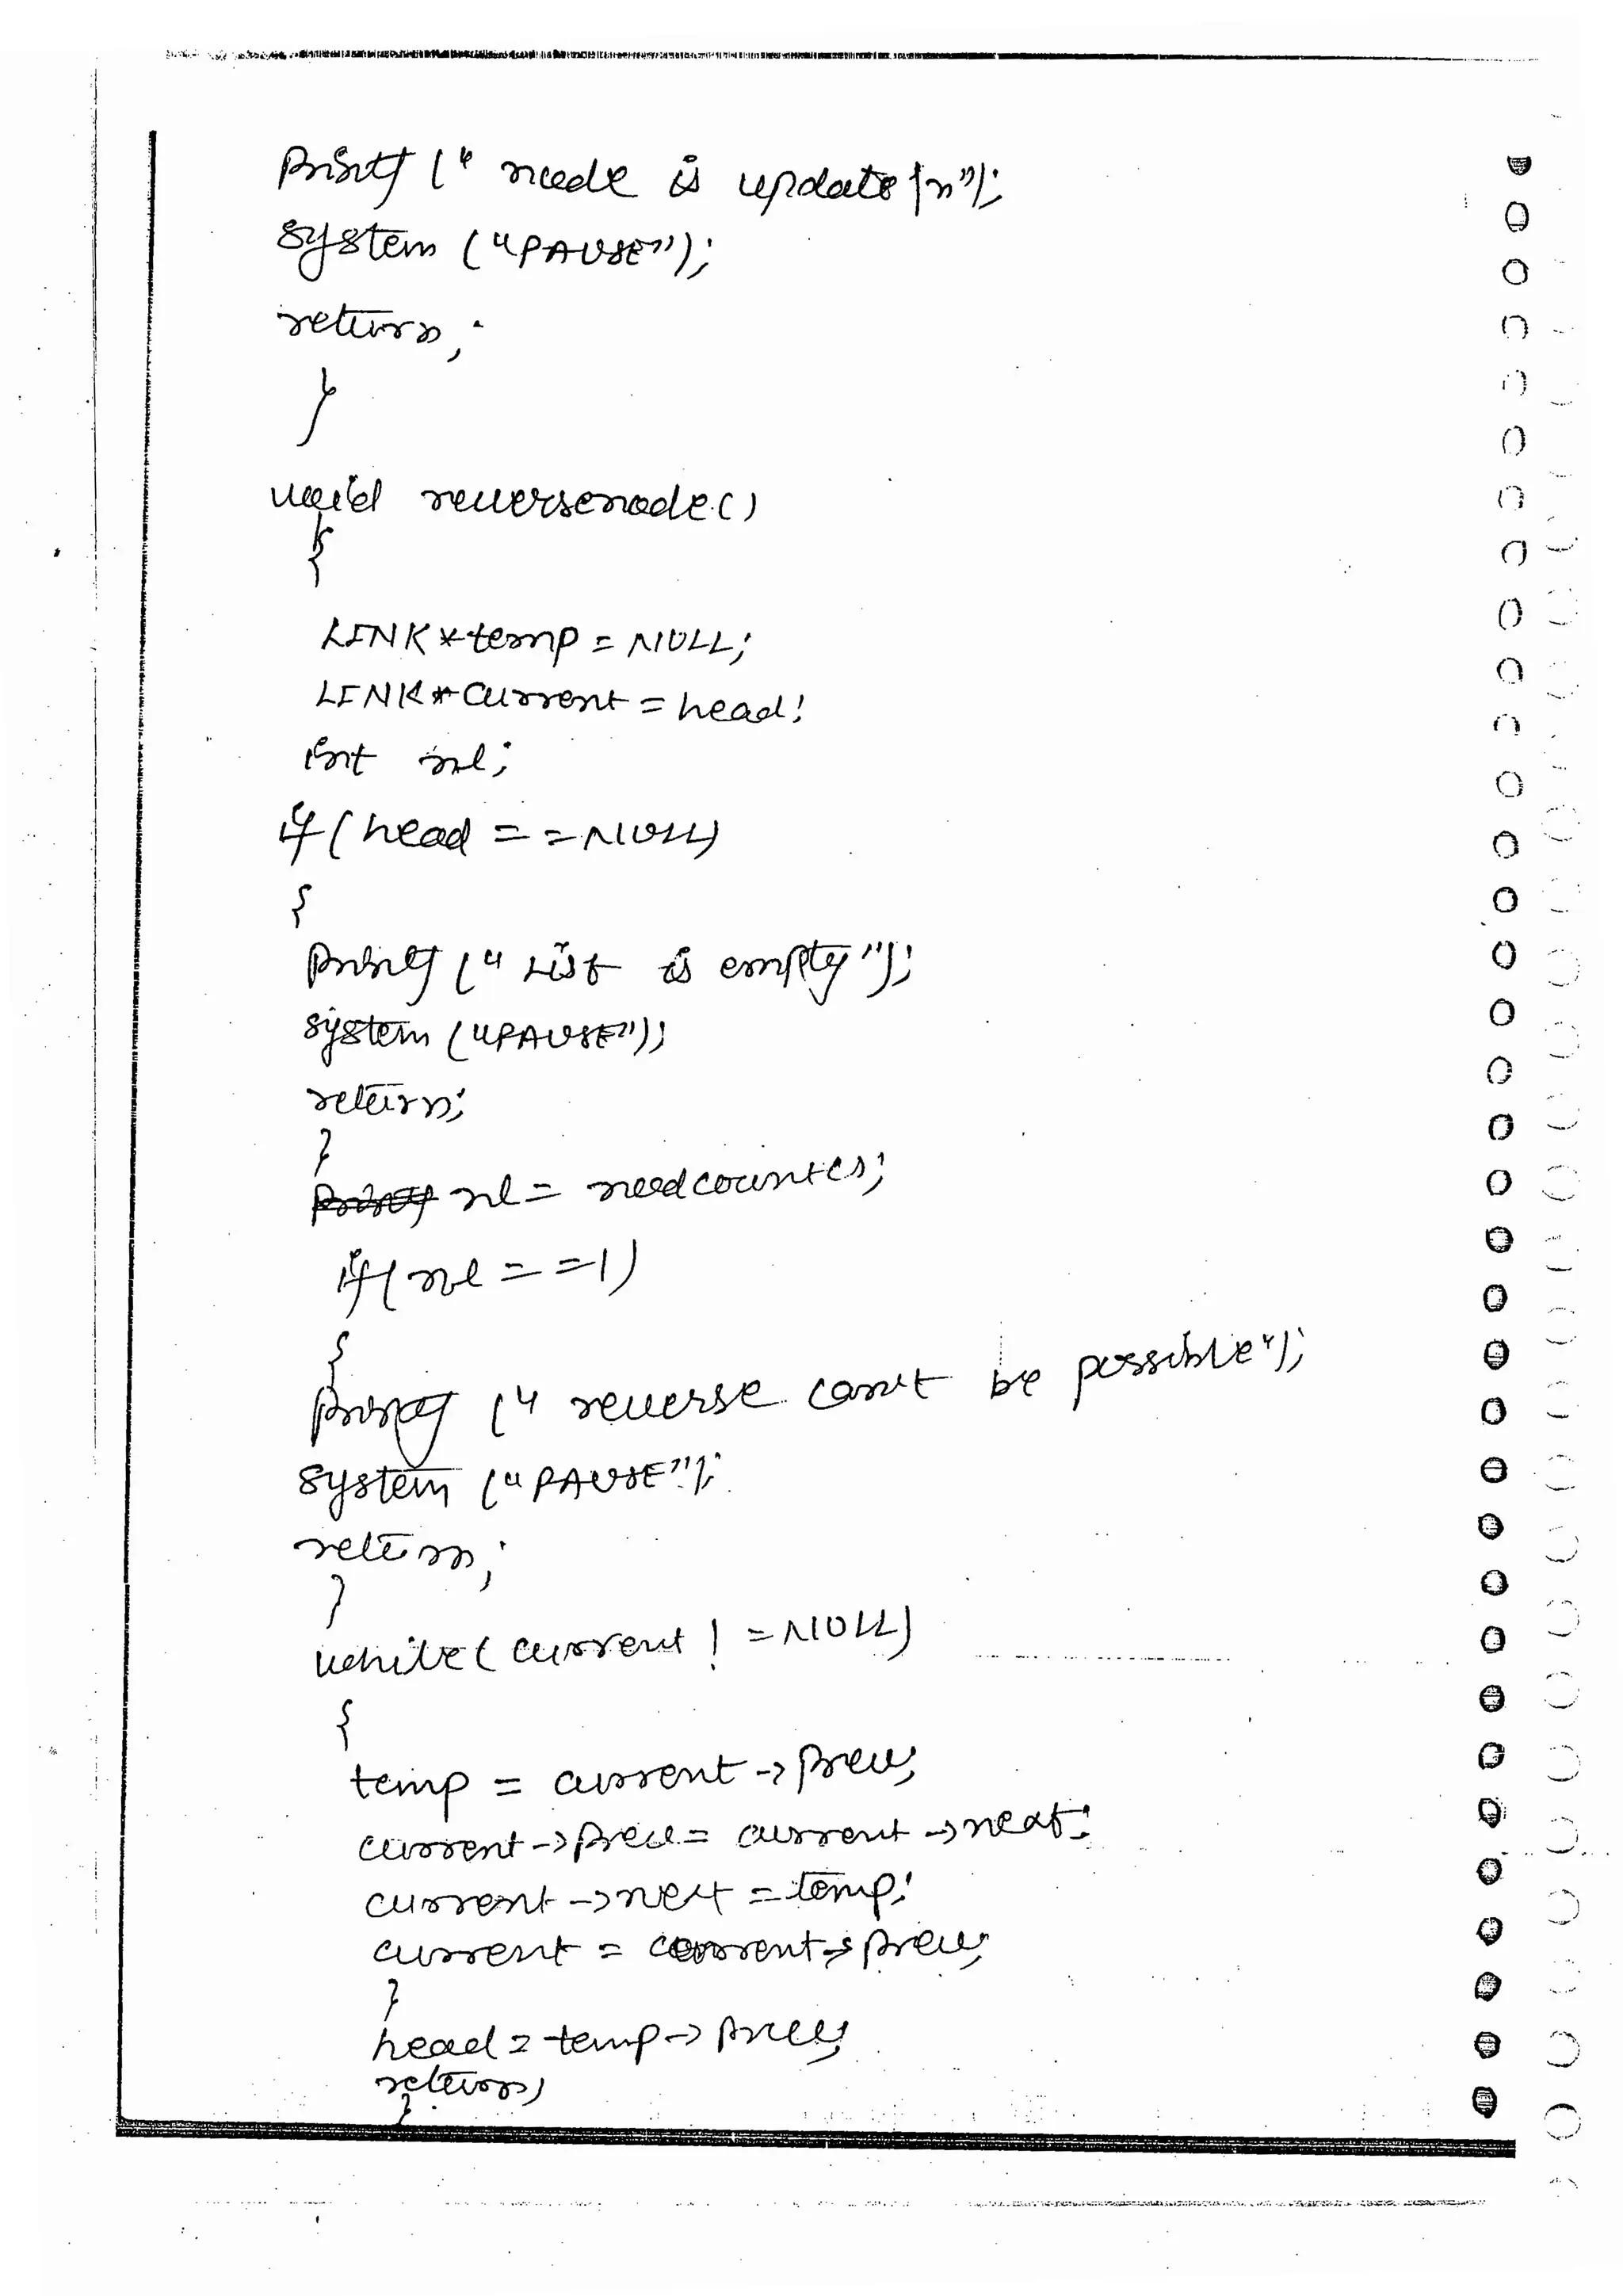 printf (" node is update \n");
system ("PAUSE");
return;
}
void reversenode()
{
LINK *temp = NULL;
LINK * current = head;
int nl;
if (head = = NULL)
{
printf (" List is empty ");
system ("PAUSE");
return;
}
printf nl = nodcount();
if (nl = = 1)
{
printf (" reverse can't be possible");
system ("PAUSE");
return;
}
while( current ! = NULL)
{
temp = current -> prev;
current -> prev = current -> next;
current -> next = temp;
current = current -> prev;
}
head = temp -> prev;
return;
}